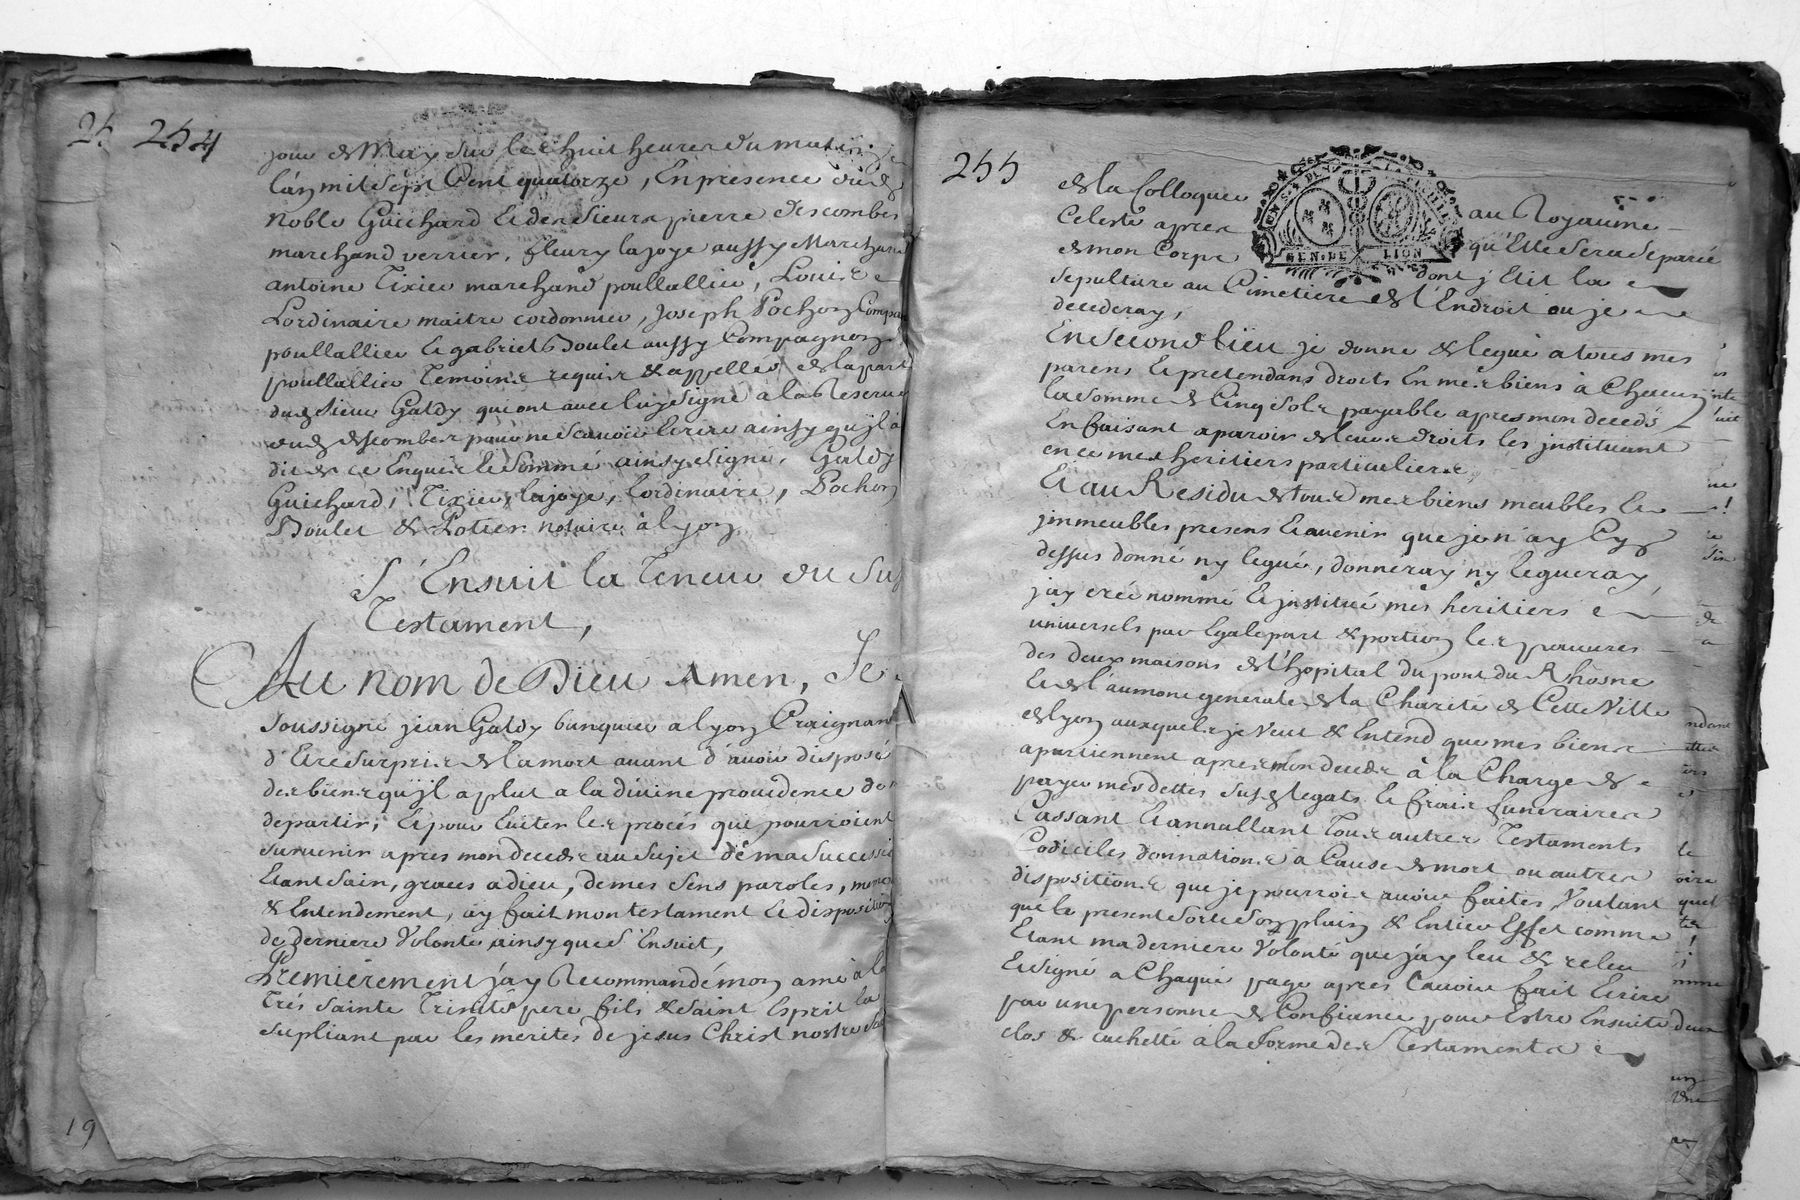 25 254
jour de May sur les huit heures du matin
l'an mil sept Cent quatorze, En presence dud
noble Guichard et des sieurs pierre descombes
marchand verrier, fleury lajoye aussy Marchand
antoine Tixier marchand poullallier, Louis
Lordinaire maitre cordonnier, Joseph Pochon Compa
poullallier et gabriel Boulet aussy Compagnon
poullallier Temoins requis & appellés de la part
dud Sieur Galdy qui ont avec luy signé a la Reserve
dud descombes pour ne scavoir Ecrire ainsy qu'jl á
dit de ce Enquis et sommé ainsy signé, Galdy
Guichard, Tixier, lajoye, lordinaire, Pochon
Boulet & Potier notaire à lyon
S'Ensuit la Teneur du Sus
Testament,
Au nom de Dieu Amen, Je
soussigné jean Galdy banquier a lyon Craignant
d'Etre surpris de la mort avant d'avoir disposé
des biens qu'jl a plut a la divine providence de
departir, et pour Eviter les procés qui pourroient
survenir apres mon decedz au sujet dé ma Successi
Etant sain, graces a dieu, de mes sens paroles, mem
& Entendement, ay fait mon testament et disposition
de derniere Volonté ainsy que S'Ensuit,
Premiérement j'ay Recommandé mon ame à la
Trés sainte Trinité pere fils & saint Esprit la
supliant par les merites de jesus Christ nostre
19
255
de la Colloquer au Royaume
Celeste apres qu'Elle sera separée
de mon Corps dont j'Elit la
sepulture au Cimetiere de l'Endroit ou je
decederay,
En second lieu je donne & legue a tous mes
parens et pretendans droits En mes biens à Chacun
la somme de Cinq sols payable apres mon decedz
En faisant aparoir de leurs droits les jnstituant
en ce mes heritiers particuliers
Et au Residu de tous mes biens meubles et
jmmeubles presens et avenir que je n'ay Cy
dessus donné ny legué, donneray ny legueray,
j'ay créé nommé et jnstitué mes heritiers
universels par Egale part & portion les pauvres
des deux maisons de l'hopital du pont du Rhosne
et de l'aumone generale de la Charité de Cette Ville
de lyon auxquels je Veut & Entend que mes biens
apartiennent apres mon decedz à la Charge de
payer mes dettes susd legats et frais funeraires
Cassant et annullant Tous autres Testaments
Codiciles donnations à Cause de mort ou autres
dispositions que je pourrois avoir faites, Voulant
qué le present sorte son plain & Entier Effet comme
Etant ma derniere Volonté que j'ay leu & releu
et signé a Chaque page apres l'avoir fait Ecrire
par une personne de Confiance pour Estre Ensuite
clos & cachetté à la forme des Testaments
GEN. DE LION